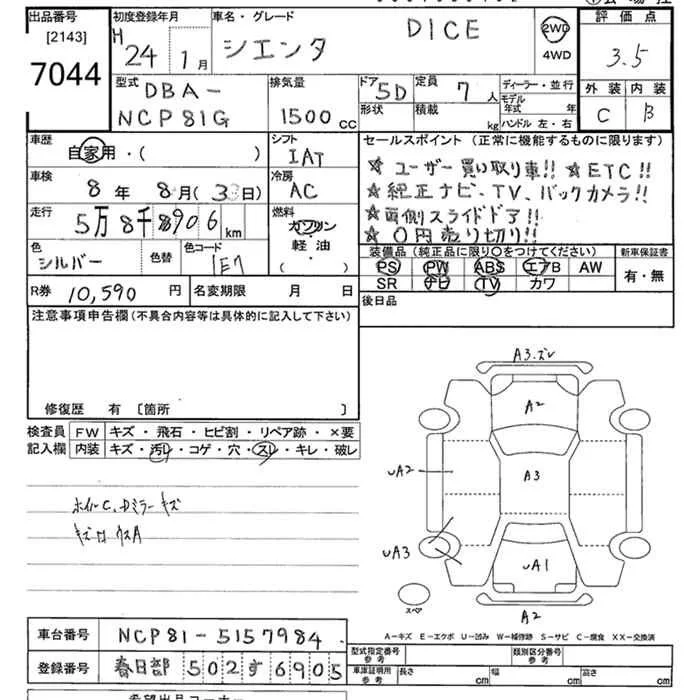 出品番号 初度登録年月 車名・グレード 評価点
[2143] H 24年 1月 シエンタ DICE 2WD 3.5
7044 4WD
型式 排気量 ドア 定員 ディーラー・並行 外装 内装
DBA- 5D 7人 モデル年式 年
NCP81G 1500cc 形状 積載 kg ハンドル 左・右 C B
車歴 シフト セールスポイント (正常に機能するものに限ります)
自家用・( ) IAT ☆ ユーザー買い取り車!! ☆ETC!!
車検 冷房 ☆純正ナビ、TV、バックカメラ!!
8年 8月( 日) AC ☆両側スライドドア!!
走行 燃料 ☆0円売り切り!!
5万8千906km ガソリン
軽油
( )
色 色替 色コード 装備品 (純正品に限り〇をつけてください) 新車保証書
シルバー 1E7 PS PW ABS エアB AW 有・無
SR ナビ TV カワ
R券 10,590円 名変期限 月 日 後日品
注意事項申告欄 (不具合内容等は具体的に記入して下さい)
修復歴 有 [箇所 ]
検査員 FW キズ・飛石・ヒビ割・リペア跡・×要
記入欄 内装 キズ・汚レ・コゲ・穴・スレ・キレ・破レ
ホイルC、Dミラーキズ
A3.ズレ
A2
A3
UA2
UA3
UA1
A2
スペア
A-キズ E-エクボ U-凹み W-補修跡 S-サビ C-腐食 XX-交換済
車台番号 NCP81-5157984
登録番号 春日部 502 す 6905
型式指定番号 参考 類別区分番号 参考
車庫証明用 参考 長さ cm 幅 cm 高さ cm
希望出品コーナー